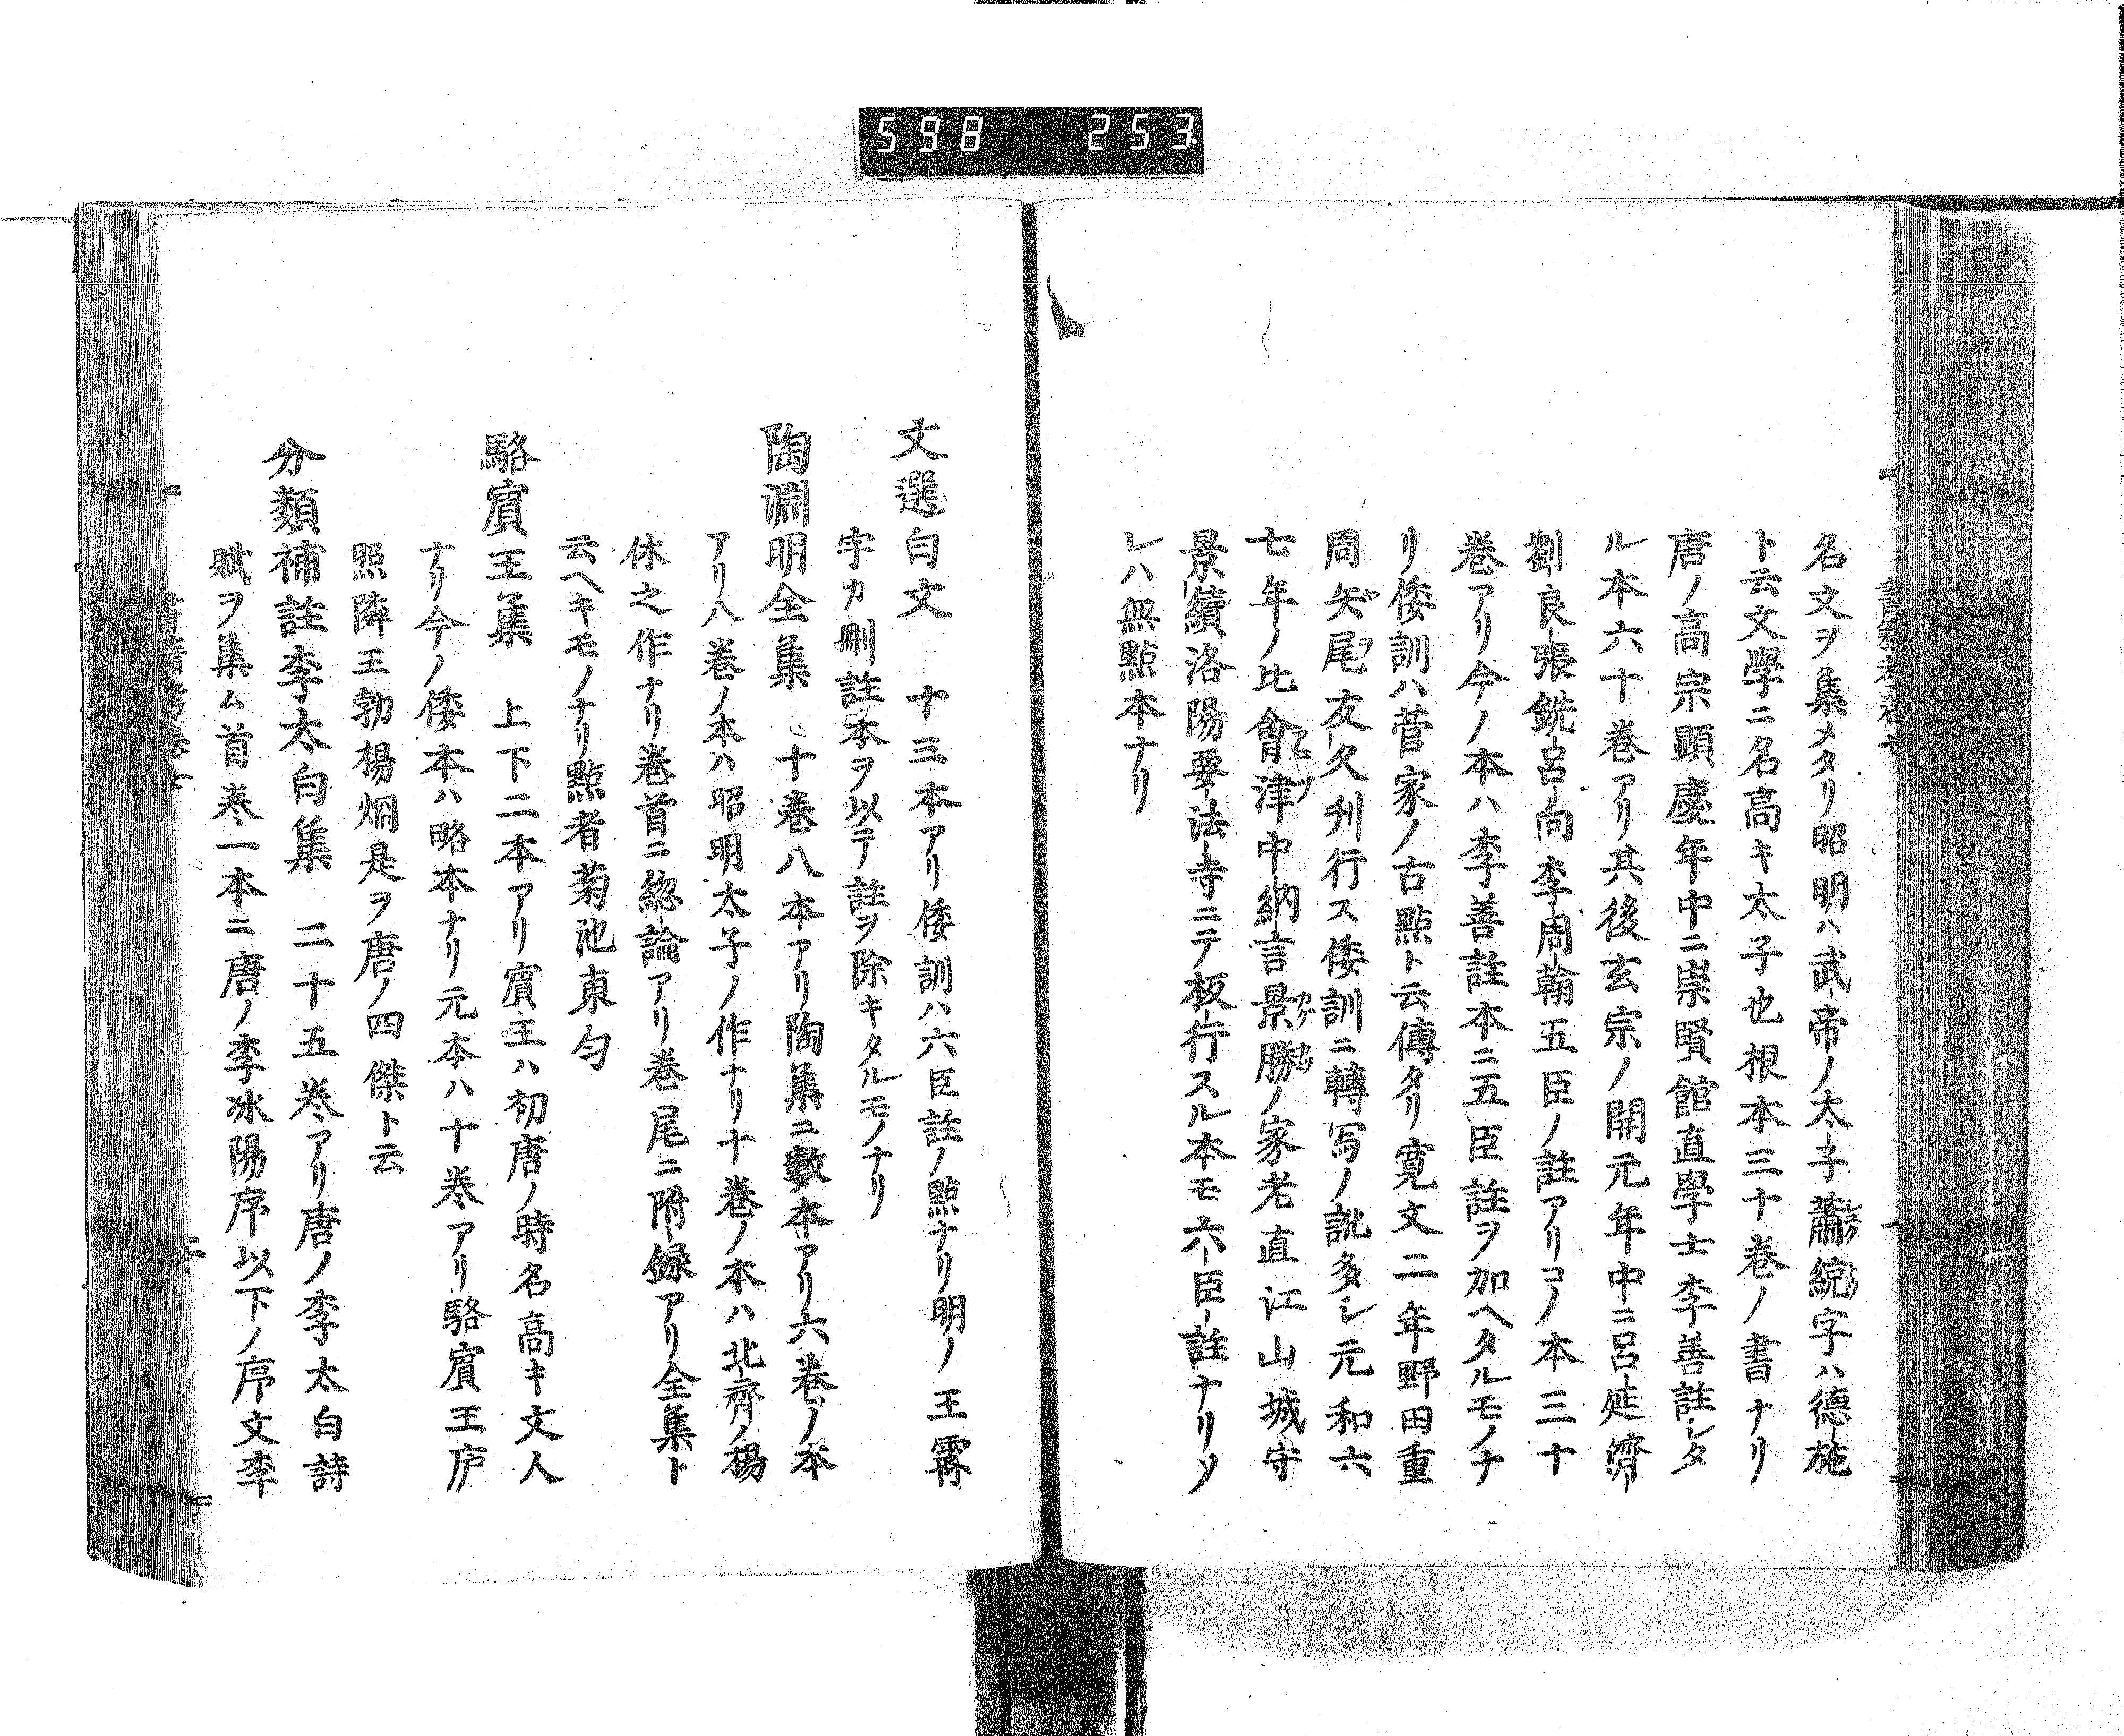 598 253
名文ヲ集メタリ昭明ハ武帝ノ太子蕭統字ハ德施
ト云文學ニ名高キ太子也根本三十卷ノ書ナリ
唐ノ高宗顯慶年中ニ崇賢館直學士李善註シタ
ル本六十卷アリ其後玄宗ノ開元年中ニ呂延濟
劉良張銑呂向李周翰五臣ノ註アリコノ本三十
卷アリ今ノ本ハ李善註本ニ五臣註ヲ加ヘタルモノナ
リ倭訓ハ菅家ノ古點ト云傳タリ寛文二年野田重
周矢尾友久刋行ス倭訓ニ轉写ノ訛多シ元和六
七年ノ比會津中納言景勝ノ家老直江山城守
景續洛陽要法寺ニテ板行スル本モ六臣註ナリソ
レハ無點本ナリ
文選白文 十三本アリ倭訓ハ六臣註ノ點ナリ明ノ王霖
宇カ刪註本ヲ以テ註ヲ除キタルモノナリ
陶淵明全集 十卷八本アリ陶集ニ數本アリ六卷ノ本
アリ八卷ノ本ハ昭明太子ノ作ナリ十卷ノ本ハ北齊ノ楊
休之作ナリ卷首ニ總論アリ卷尾ニ附録アリ全集ト
云ヘキモノナリ點者菊池東匀
駱賓王集 上下二本アリ賓王ハ初唐ノ時名高キ文人
ナリ今ノ倭本ハ略本ナリ元本ハ十卷アリ駱賓王庐
照隣王勃楊烱是ヲ唐ノ四傑ト云
分類補註李太白集 二十五卷アリ唐ノ李太白詩
賦ヲ集ム首卷一本ニ唐ノ李冰陽序以下ノ序文李